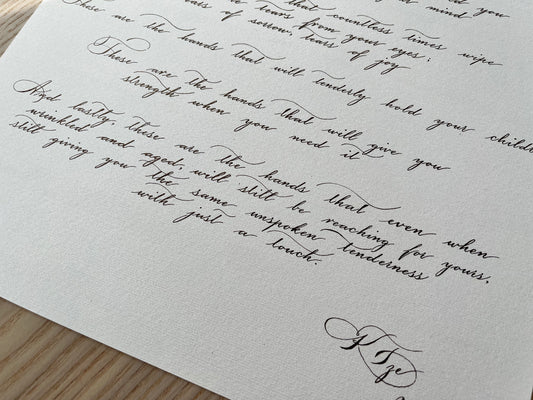 you
that countless times wipe
tears from your eyes:
tears of sorrow, tears of joy
These are the hands that will tenderly hold your child
These are the hands that will give you
strength when you need it
And lastly, these are the hands that even when
wrinkled and aged, will still be reaching for yours,
still giving you the same unspoken tenderness
with just a touch.